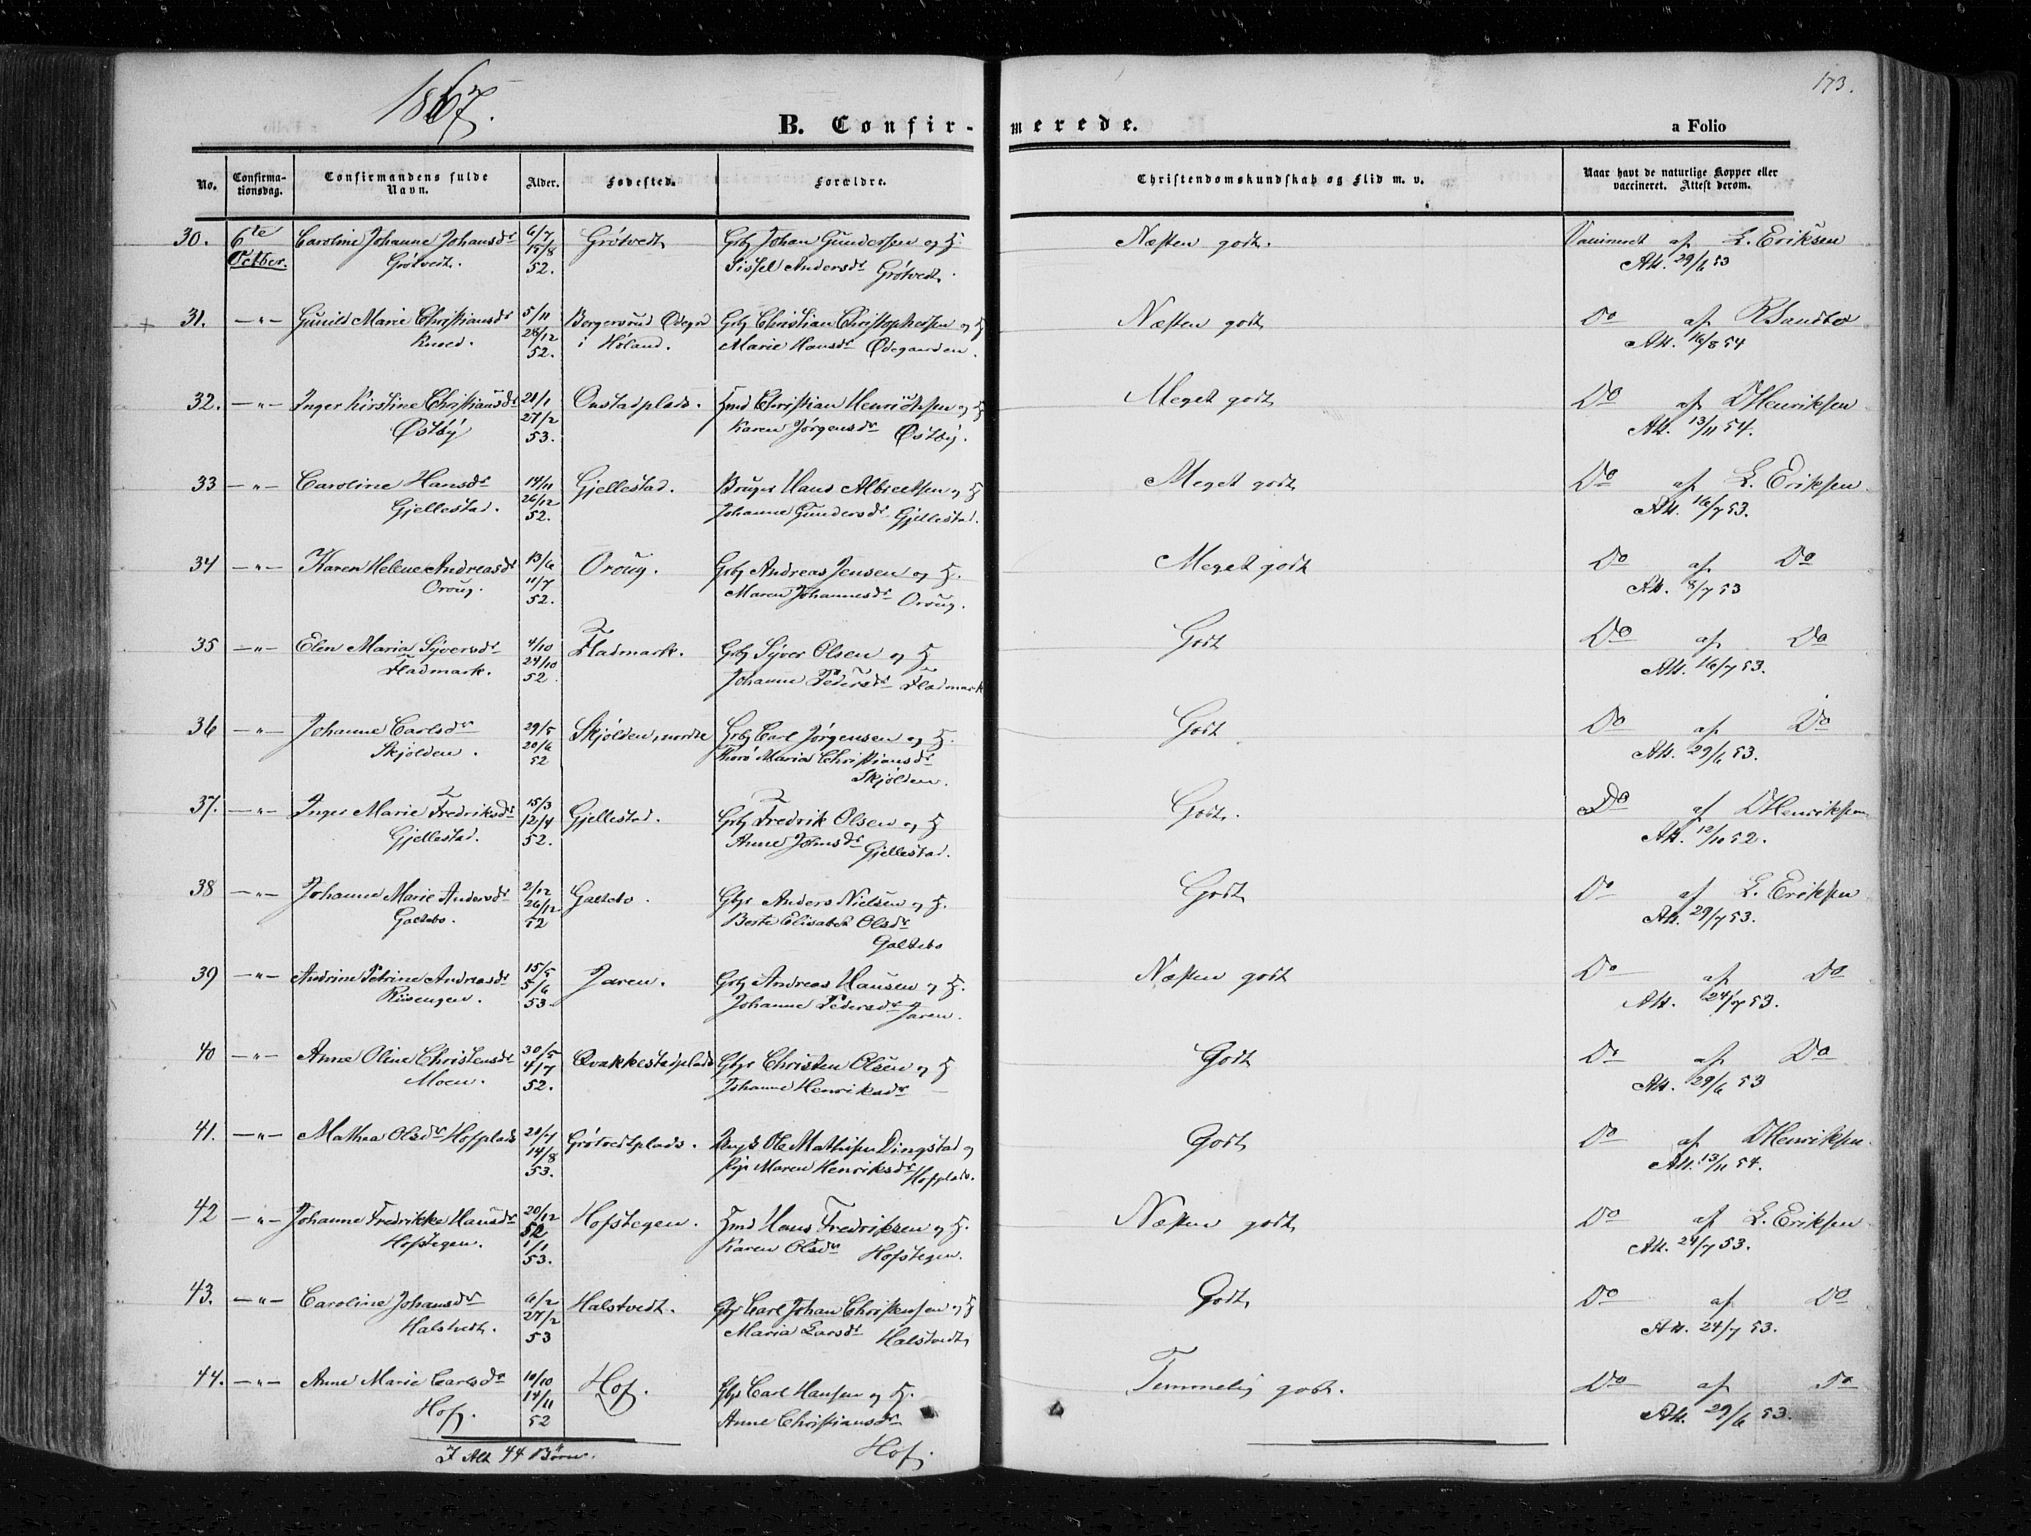 1867.
173.
B. Confir-
merede.
a Folio
No.
Confirma-
tionsdag.
Confirmandens fulde
Navn.
Alder.
Fødested.
Forældre.
Christendomskundskab og Flid m. v.
Naar havt de naturlige Kopper eller
vaccineret. Attest derom.
30. 6te Caroline Johanne Johansdr 6/7 Grötvedt Grbr Johan Gundersen og H. Næsten godt. Vaccineret af L. Eriksen
October. Grötvedt. 15/8 Sissel Andersdr Grötvedt. Att. 29/6 53
52.
31. —"— Gunild Marie Christiansdr 5/11 Borgersrud Ødegrd Grbr Christian Christophersen og H Næsten godt Do af R Sandbo
28/12 i Høland. Marie Hansdr Ødegaarden. Att. 16/8 54
52.
32. —"— Inger Kirstine Christiansdr 21/1 Onstadplads. Hmd Christian Henrichsen og H Meget godt Do af D Henriksen
Østbÿ 27/2 Karen Jørgensdr Østbÿ. Att. 13/11 54.
53.
33 —"— Caroline Hansdr 14/11 Gjellestad. Bruger Hans Albretsen og H Meget godt Do af L. Eriksen
Gjellestad. 26/12 Johanne Gundersdr Gjellestad. Att. 16/7 53.
52.
34 —"— Karen Helene Andreasdr 13/6 Oroug. Grbr Andreas Jensen og H. Meget godt Do af Do
Oroug. 11/7 Maren Johannesdr Oroug. Att. 8/7 53
52.
35 —"— Elen Maria Syversdr 4/10 Fladmark. Grbr Syver Olsen og H Godt Do af Do
Fladmark. 24/10 Johanne Pedersdr Fladmark Att. 16/7 53.
52
36 —"— Johanne Carlsdr 29/5 Skjolden, nordre Grbr Carl Jørgensen og H. Godt Do af Do
Skjolden. 20/6 Maria Christiansdr Att. 29/6 53.
52 Skjolden.
37. —"— Inger Marie Fredriksdr 15/3 Gjellestad. Grbr Fredrik Olsen og H Godt. Do af D Henriksen
Gjellestad. 12/4 Anne Johnsdr Gjellestad. Att. 12/10 52.
52.
38 —"— Johanne Marie Andersdr 2/12 Galtebo. Gbr Anders Nielsen og H. Godt Do af L. Eriksen
Galtebo. 26/12 Berte Elisabet Olsdr Att. 29/7 53.
52 Galtebo
39 —"— Andrine Petrine Andreasdr 15/5 Jaren. Grbr Andreas Hansen og H. Næsten godt Do af Do
Risengen. 5/6 Johanne Pedersdr Jaren. Att. 24/7 53.
53.
40 —"— Anne Oline Christensdr 30/5 Qvakkestadplads Gbr Christen Olsen og H Godt Do af Do
Moen. 4/7 Johanne Henriksdr — Att. 29/6 53
52.
41. —"— Mathea Olsdr Hofplads 20/7 Grötvedtplads. Ungk Ole Mathisen Dingstad og Godt Do af D Henriksen
14/8 Pige Maren Henriksdr Hofplads. Att. 13/11 54.
53.
42 —"— Johanne Fredrikke Hansdr 20/12 Hofstegen. Hmd Hans Fredriksen og H. Næsten godt Do af L. Eriksen
Hofstegen. 52 Karen Olsdr Hofstegen. Att. 24/7 53.
1/1
53.
43. —"— Caroline Johansdr 6/2 Halstvedt. Gbr Carl Johan Christensen og H Godt Do af Do
Halstvedt. 27/2 Maria Larsdr Halstvedt Att. 24/7 53.
53
44. —"— Anne Marie Carlsdr 10/10 Hof. Gbr Carl Hansen og H. Temmelig godt. Do af Do
Hof. 14/11 Anne Christiansdr Att. 29/6 53.
52 Hof.
I Alt 44 Børn.